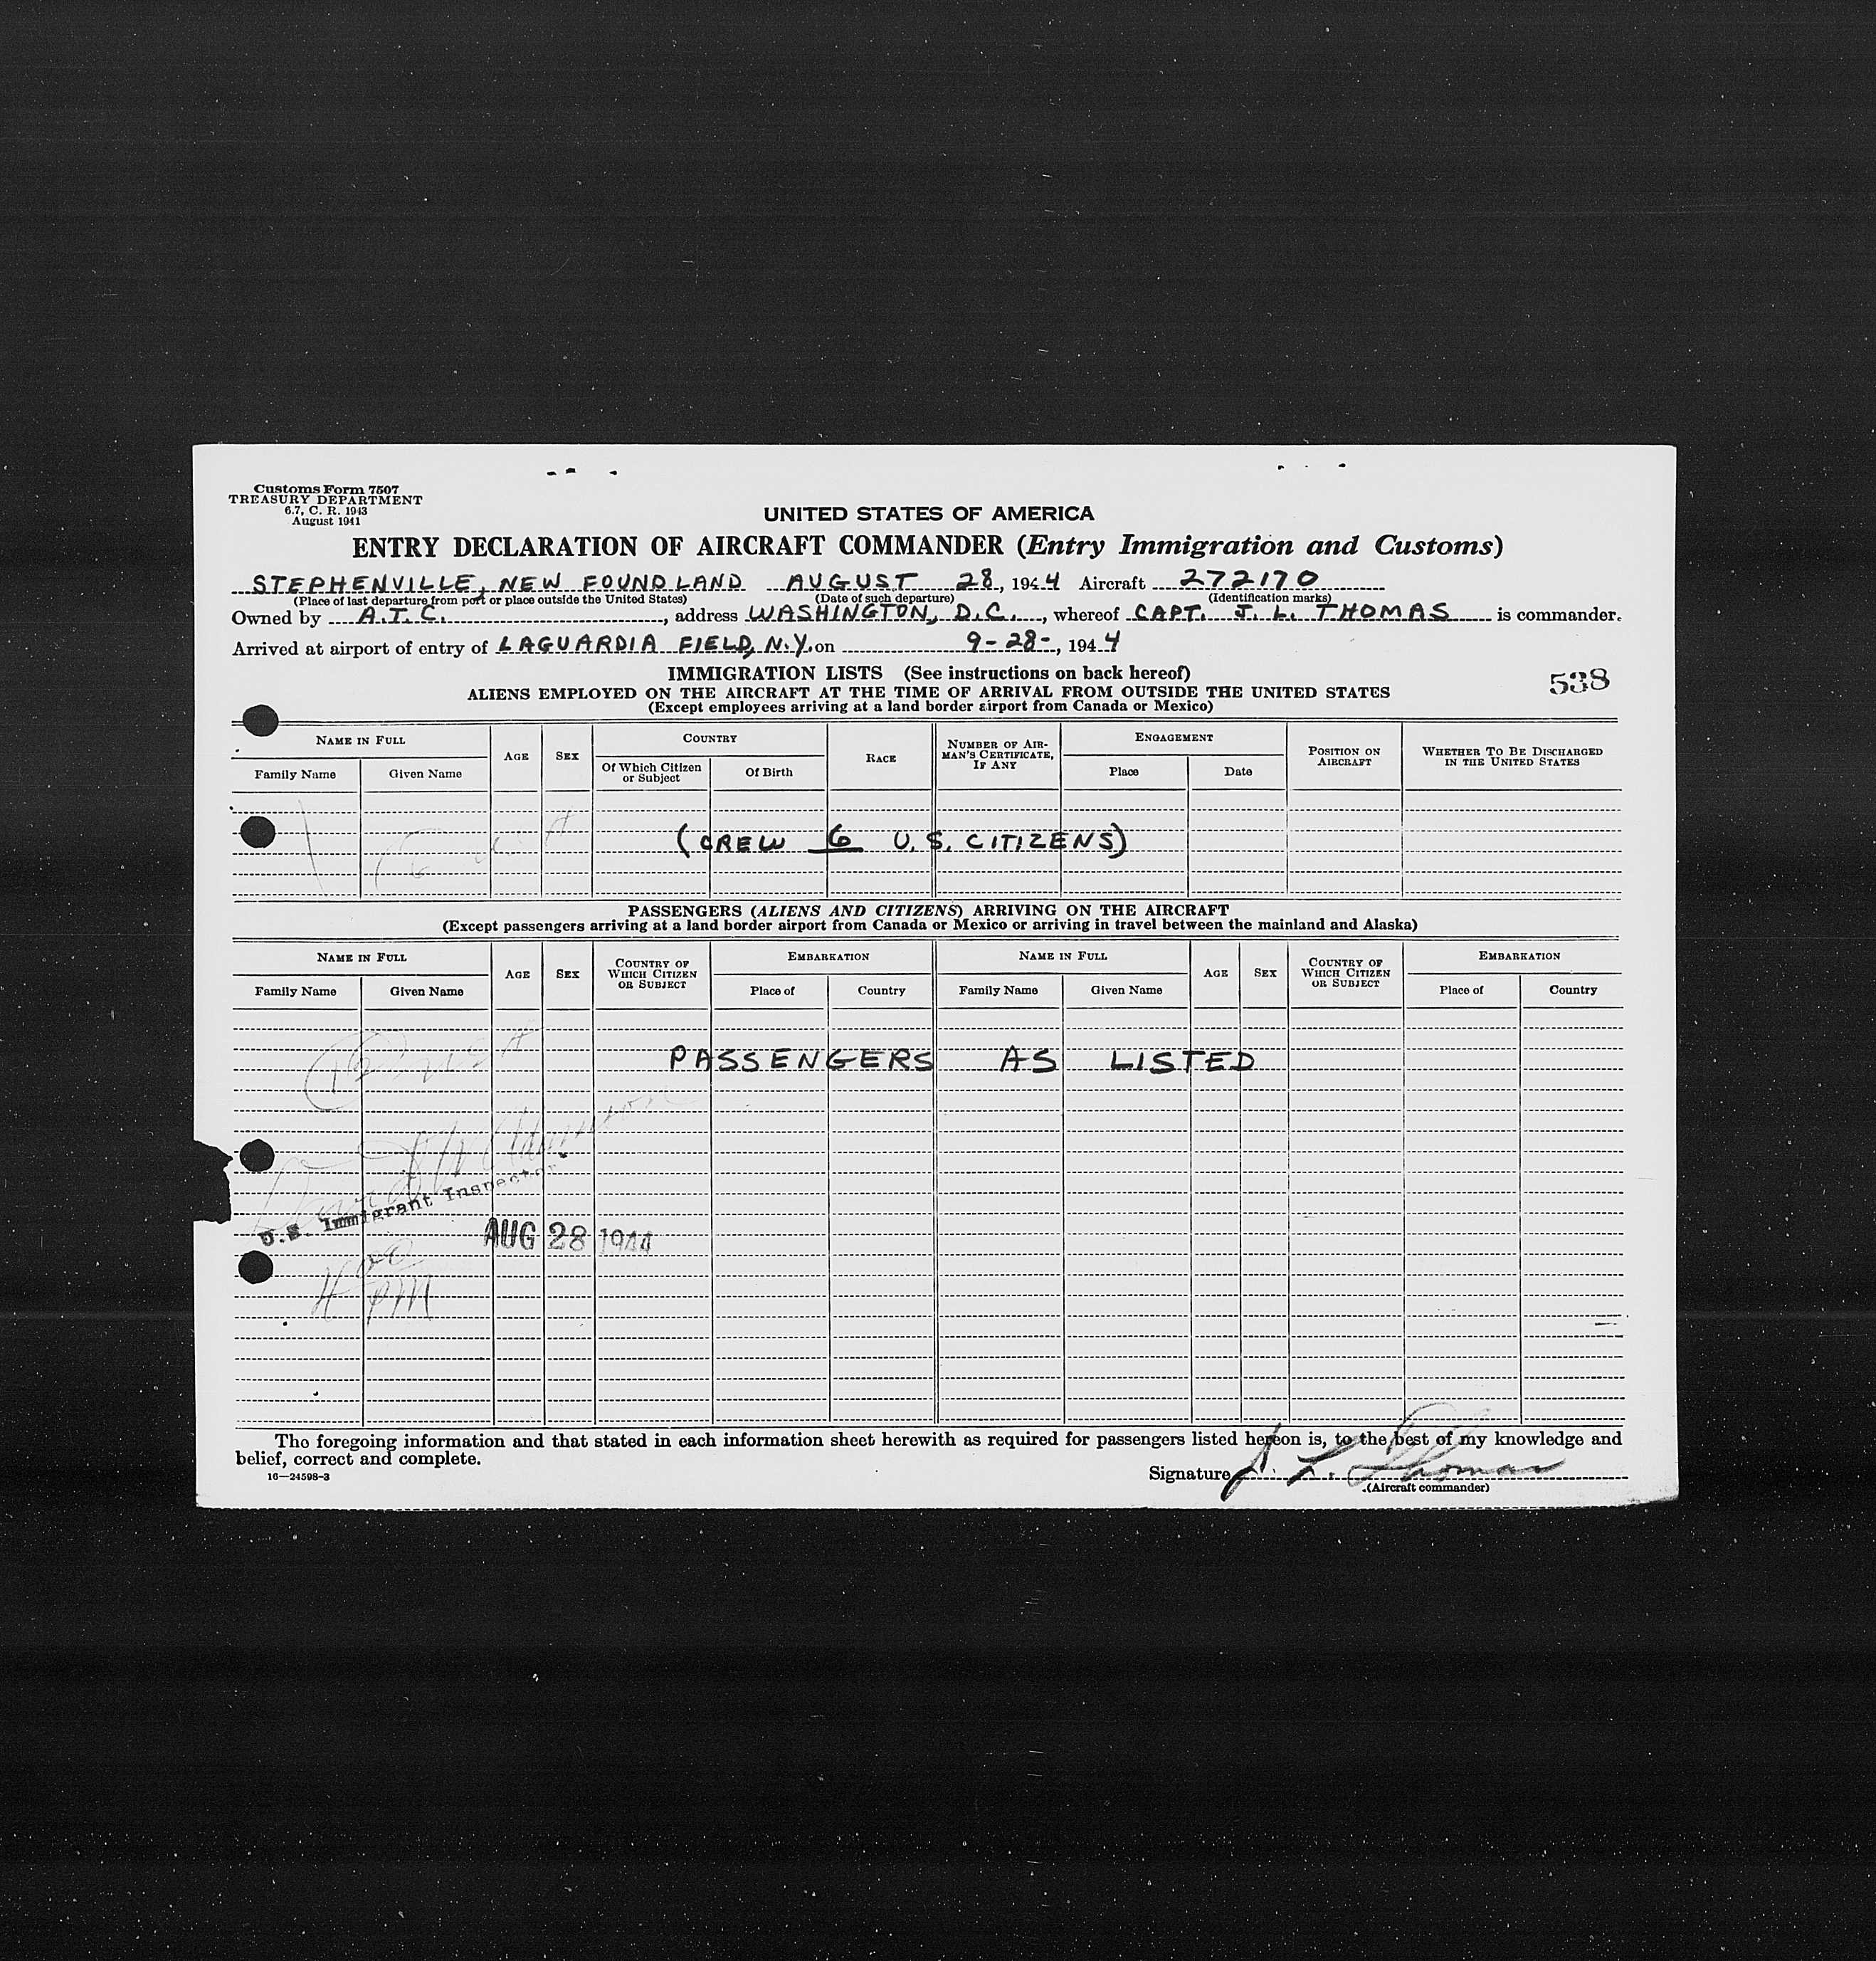 Customs Form 7507
TREASURY DEPARTMENT
6.7, C. R. 1943
August 1941
UNITED STATES OF AMERICA
ENTRY DECLARATION OF AIRCRAFT COMMANDER (Entry Immigration and Customs)
STEPHENVILLE, NEW FOUNDLAND AUGUST 28, 1944 Aircraft 272170
(Place of last departure from port or place outside the United States) (Date of such departure) (Identification marks)
Owned by A.T.C., address WASHINGTON, D.C., whereof CAPT. J. L. THOMAS is commander.
Arrived at airport of entry of LAGUARDIA FIELD, N.Y. on 9-28-, 1944
IMMIGRATION LISTS (See instructions on back hereof)
538
ALIENS EMPLOYED ON THE AIRCRAFT AT THE TIME OF ARRIVAL FROM OUTSIDE THE UNITED STATES
(Except employees arriving at a land border airport from Canada or Mexico)
NAME IN FULL AGE SEX COUNTRY RACE NUMBER OF AIRMAN'S CERTIFICATE, IF ANY ENGAGEMENT POSITION ON AIRCRAFT WHETHER TO BE DISCHARGED IN THE UNITED STATES
Family Name Given Name Of Which Citizen or Subject Of Birth Place Date
(CREW 6 U.S. CITIZENS)
PASSENGERS (ALIENS AND CITIZENS) ARRIVING ON THE AIRCRAFT
(Except passengers arriving at a land border airport from Canada or Mexico or arriving in travel between the mainland and Alaska)
NAME IN FULL AGE SEX COUNTRY OF WHICH CITIZEN OR SUBJECT EMBARKATION NAME IN FULL AGE SEX COUNTRY OF WHICH CITIZEN OR SUBJECT EMBARKATION
Family Name Given Name Place of Country Family Name Given Name Place of Country
PASSENGERS AS LISTED
U.S. Immigrant Inspector
AUG 28 1944
PM
The foregoing information and that stated in each information sheet herewith as required for passengers listed hereon is, to the best of my knowledge and
belief, correct and complete.
16—24598-3
Signature J. L. Thomas
(Aircraft commander)